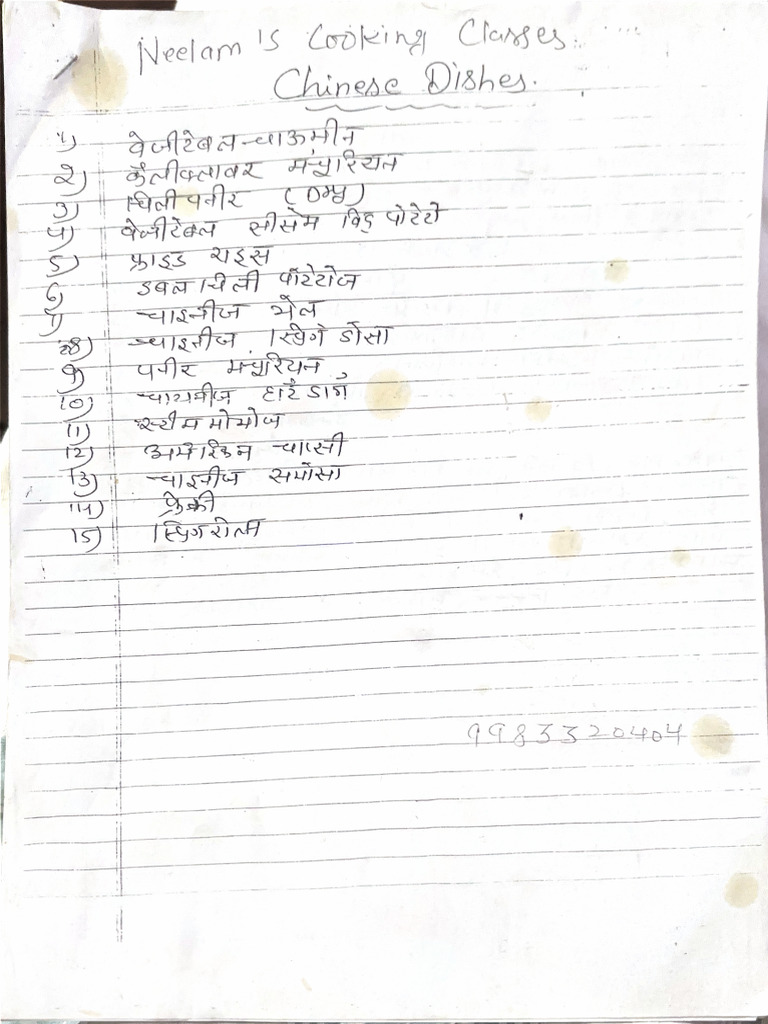 Neelam's Cooking Classes.
Chinese Dishes.
1) वेजीटेबल चाऊमीन
2) कैलीफ्लावर मन्चुरियन
3) चिली पनीर
4) वेजीटेबल सीसेम विद् पोटेटो
5) फ्राइड राइस
6) डबल चिली पोटेटोज
7) चाइनीज भेल
8) चाइनीज स्प्रिगं डोसा
9) पनीर मन्चुरियन
10) चायनीज हार्ट डागं
11) स्टीम मोमोज
12) अमेरिकन चाप्सी
13) चाइनीज समोसा
14) फ्रेंकी
15) स्प्रिगरोल
9983320404